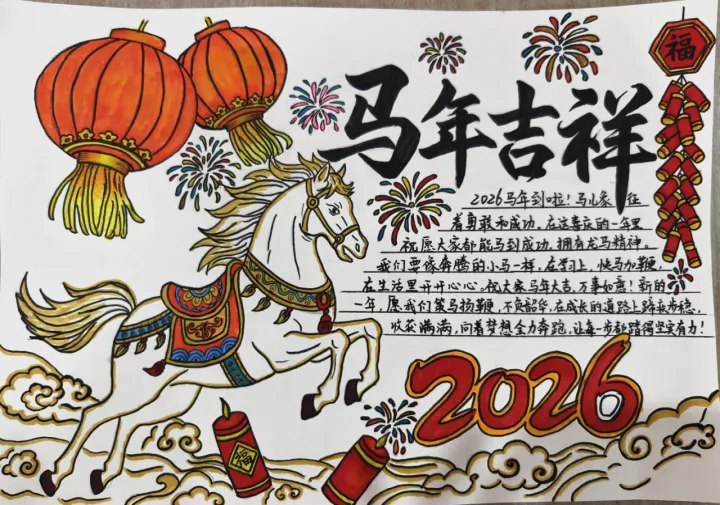 马年吉祥
福
2026马年到啦！马儿象征
着勇敢和成功。在这喜庆的一年里
祝愿大家都能马到成功，拥有龙马精神。
我们要像奔腾的小马一样，在学习上，快马加鞭，
在生活里开开心心。祝大家马年大吉，万事如意！新的
一年，愿我们策马扬鞭，不负韶华，在成长的道路上蹄疾步稳，
收获满满，向着梦想全力奔跑，让每一步都踏得坚实有力！
2026